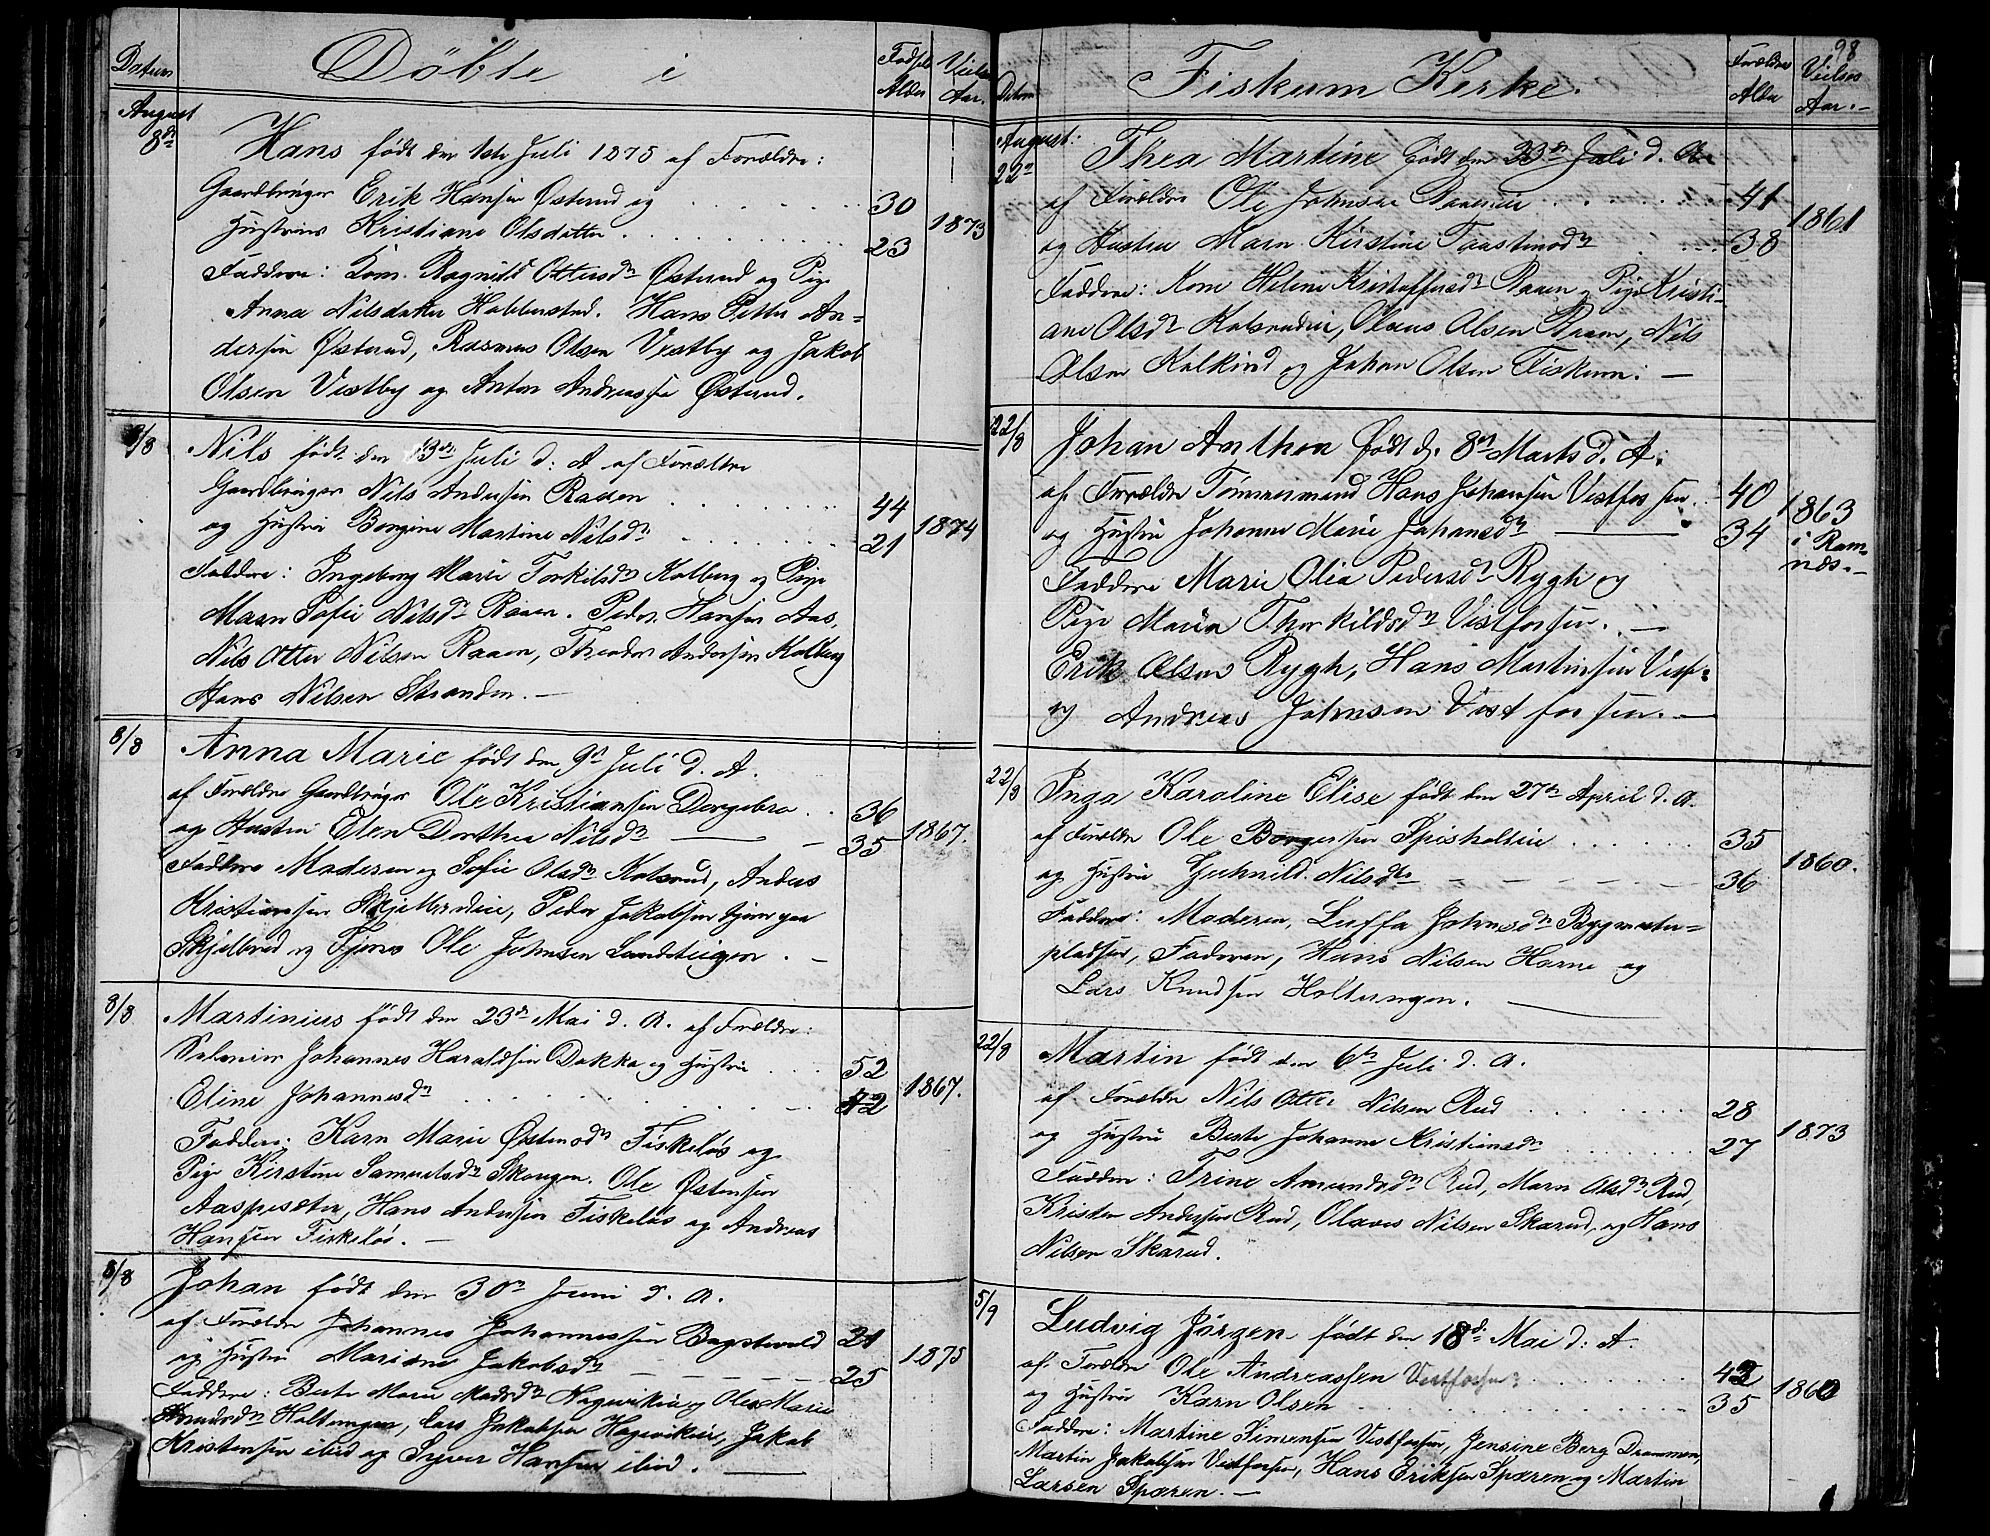 Datum
Döbte i
Vielses Aar.
August
8de
Hans født den 1ste Juli 1875 af Forældre:
Gaardbruger Erik Hansen Østerud og 30
Hustrues Kristiane Olsdatter 23 1873
Faddere: Kone Ragnild Ottersdr Østerud og Pige
Anna Nilsdatter Habberstad. Hans Petter An=
dersen Østerud, Rasmus Olsen Vestby og Jakob
Olsen Vestby og Anton Andreassen Østerud.
8/8 Nils født den 13de Juli d: A af Forældre
Gaardbruger Nils Andersen Raaen 44
og Hustru Borgine Martine Nilsdr 21 1874
Faddere: Ingeborg Marie Torkilsdr Kolberg og Pige
Maren Sofie Nilsdr Raaen. Peder Hansen Aas,
Nils Otter Nilsen Raaen, Theodor Andersen Kolberg
Hans Nilsen Stranden. —
8/8 Anna Marie født den 9de Juli d. A.
af Forældre Gaardbruger Ole Kristiansen Dorgebro 36
og Hustru Elen Dorthea Nilsdr 35 1867.
Faddere Moderen og Sofie Olsdr Kolsrud, Anders
Kristiansen Skjelbredeie, Peder Jakobsen
Skjelbred og Tjener Ole Johnsen Landsteigen. —
8/8 Martinius født den 23de Mai d. A. af Forældre:
Johannes Haraldsen Dokka og Hustru 52
Eline Johannesdr 42 1867.
Faddere: Karn Marie Østensdr Fiskeløs og
Pige Kirstine Samuelsdr Skougen. Ole Østensen
Aaspesæter, Hans Andersen Fiskeløs og Andreas
Hansen Fiskeløs. —
8/8 Johan født den 30te Juni d. A.
af Forældre Johannes Johannessen Bagstevold 21
og Hustru Mariane Jakobsdr 25 1875
Faddere: Berte Marie Madsdr Hagevikeie og Olea Marie
Knudsdr Holtungen, Lars Jakobsen Hagevikeie, Jakob
Kristensen ibid og Syver Hansen ibid. —
98
Datum
Fiskum Kerke.
Forældre Alder
Vielses Aar.—
August:
22de Thea Martine født den 23de Juli d. A.
af Forældre Ole Johnsen Raaeneie 41
og Hustru Maren Kirstine Taastensdr 38 1861
Faddere: Kone Helene Kristoffersdr Raaen, Pige Kristi=
ane Olsdr Kolsrudeie, Olaus Olsen Raaen, Nils
Olsen Kolkind og Johan Olsen Fiskum: —
22/8 Johan Anthon Født d. 8de Marts d. A:
af Forældre Tømmermand Hans Johansen Vestfossen 40 1863
og Hustru Johanne Marie Johansdr 34 i Ram=
næs.—
Faddere Marie Olea Pedersdr Rygh og
Pige Maria Thorkildsdr Vestfossen. —
Erik Olsen Rygh, Hans Martinsen Vestf:
og Andreas Johnsen Vestfossen. —
22/8 Inga Karoline Elise født den 27de April d. A.
af Forældre Ole Borgersen Spisholteie 35
og Hustru Gunhild Nilsdtr 36 1860.
Faddere: Moderen, Luffa Johnsdr Bygmester=
pladsen, Faderen, Hans Nilsen Horne og
Lars Knudsen Holtungen. —
22/8 Martin født den 6te Juli d. A.
af Forældre Nils Otter Nilsen Rud 28
og Hustru Berte Johanne Kristiansdr 27 1873
Faddere: Trine Amundsdr Rud, Maren Olsdr Rud,
Kristen Andersen Rud, Olaves Nilsen Skarud, og Hans
Nilsen Skarud.
5/9 Ludvig Jörgen født den 18de Mai d: A.
af Forældre Ole Andreassen Vestfossen 42
og Hustru Karn Olsen 35 1860
Faddere: Martine Simensen Vestfossen, Jensine Berg Drammen,
Martin Jakobsen Vestfossen, Hans Eriksen Sparen og Martin
Larsen Sparen. —